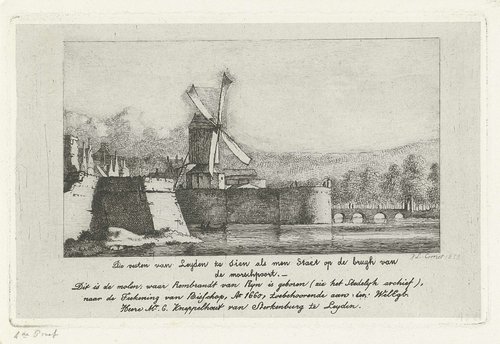 Die vesten van Leyden te sien als men staet op de brugh van
de mareshpoort. —
Dit is de molen, waar Rembrandt van Ryn is geboren (zie het Stedelyk archief),
naar de Teekening van Bisschop, Ao 1660, toebehoorende aan den Wel.Egb.
Heere Mr. C. Kneppelhout van Sterkenburg te Leyden.
J. L. Cornet